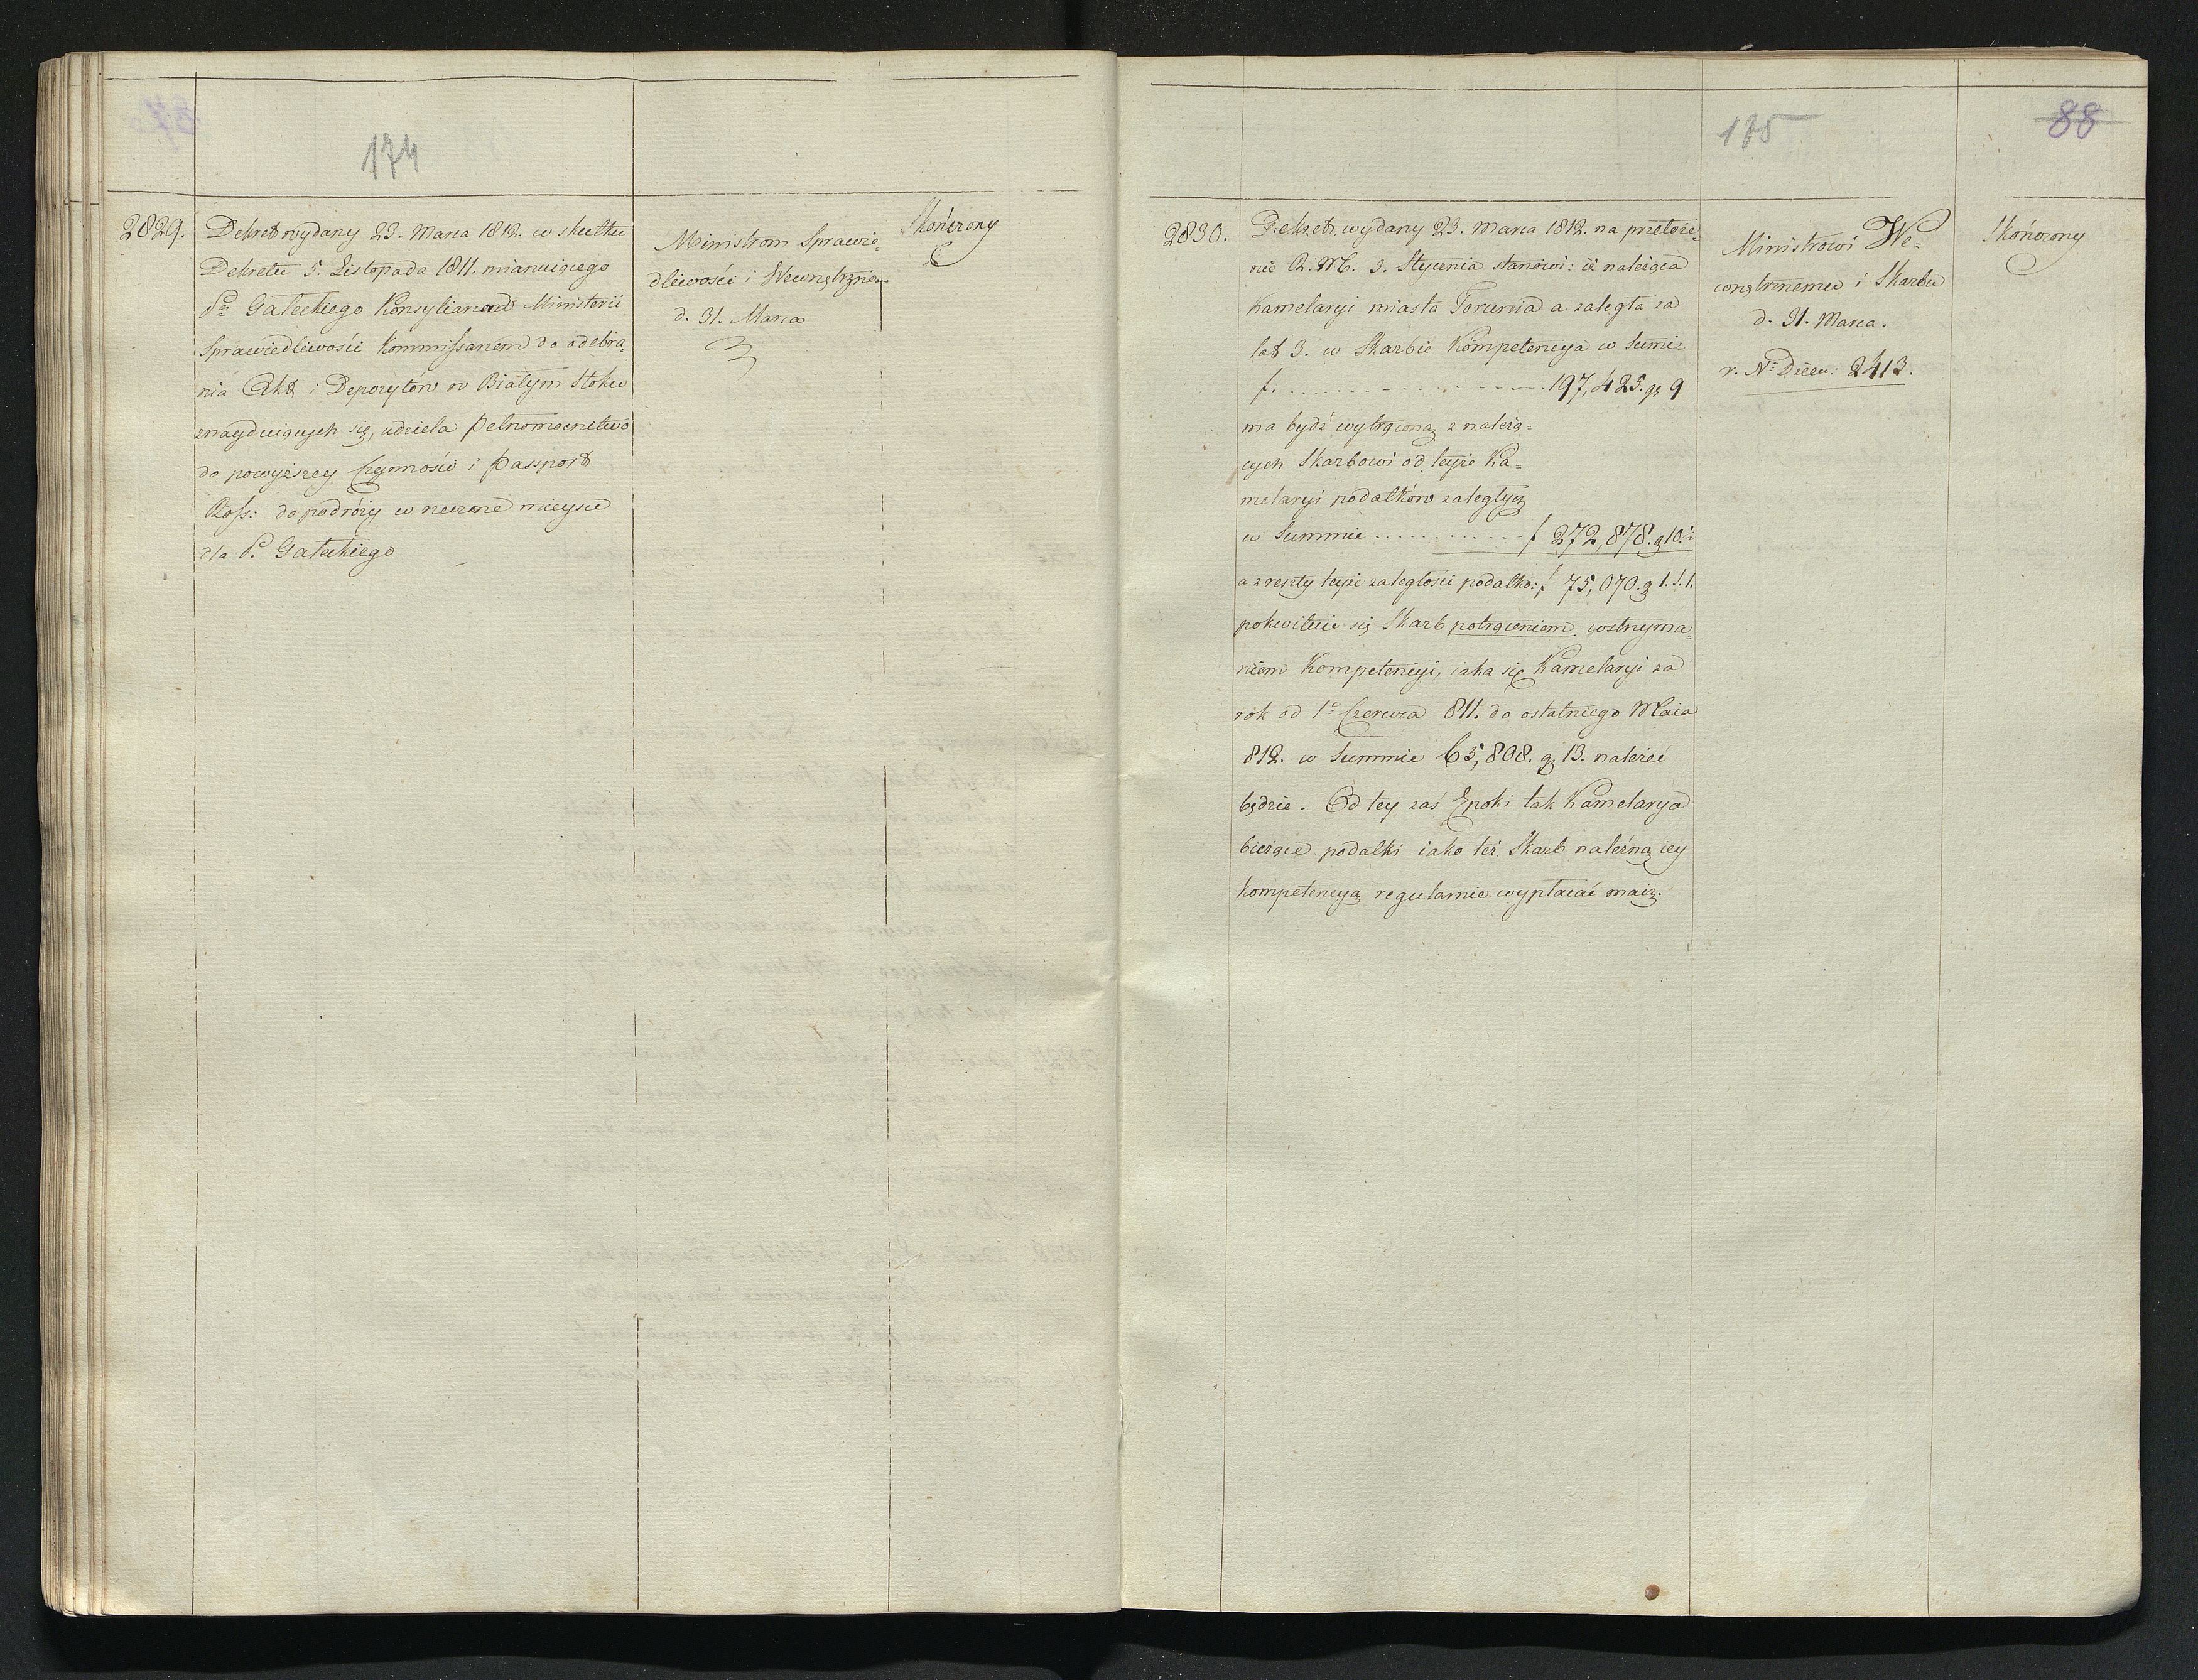 174
2829.
Dekret wydany 23. Marca 1812. w skutku
Dekretu 5. Listopada 1811. mianuiącego
Pa Gałeckiego Konsyliarza Ministerii
Sprawiedliwości Kommissarzem do odebra„
nia Akt i Depozytów w Białym Stoku
znayduiących się, udziela pełnomocnictwo
do powyższey Czynności i passport
Ross: do podróży w rzeczone mieysce
dla P. Gałeckiego
Ministrom Sprawie„
dliwości i Wewnętrzne„
d. 31. Marca
Skończony
175
88
2830.
Dekret wydany 23. Marca 1812. na przełoże„
nie R. M. 3. Stycznia stanowi: iż należąca
Kamelaryi miasta Torunia a zaległa za
lat 3. w Skarbie Kompetencya w Summie
f. . . . . . . . . . . . 197,425. gr 9
ma bydź wytrąconą z należą=
cych Skarbowi od teyże Ka=
melaryi podatków zaległych
w Summie . . . . . . . . . . f 272,878. g 10.
a z reszty teyże zaległości podatko: f 75,070. g 1. 1/1.
pokwituie się Skarb potrąceniem wstrzyma„
niem Kompetencyi, iaka się Kamelaryi za
rok od 1o Czerwca 811. do ostatniego Maia
812. w Summie 65,808. gr 13. należeć
będzie. Od tey zaś Epoki tak Kamelarya
bieżące podatki iako też Skarb należną iey
Kompetencyą regularnie wypłacać maią.
Ministrowi We=
wnętrznemu i Skarbu
d. 31. Marca.
v. No Dzien: 2413.
Skończony